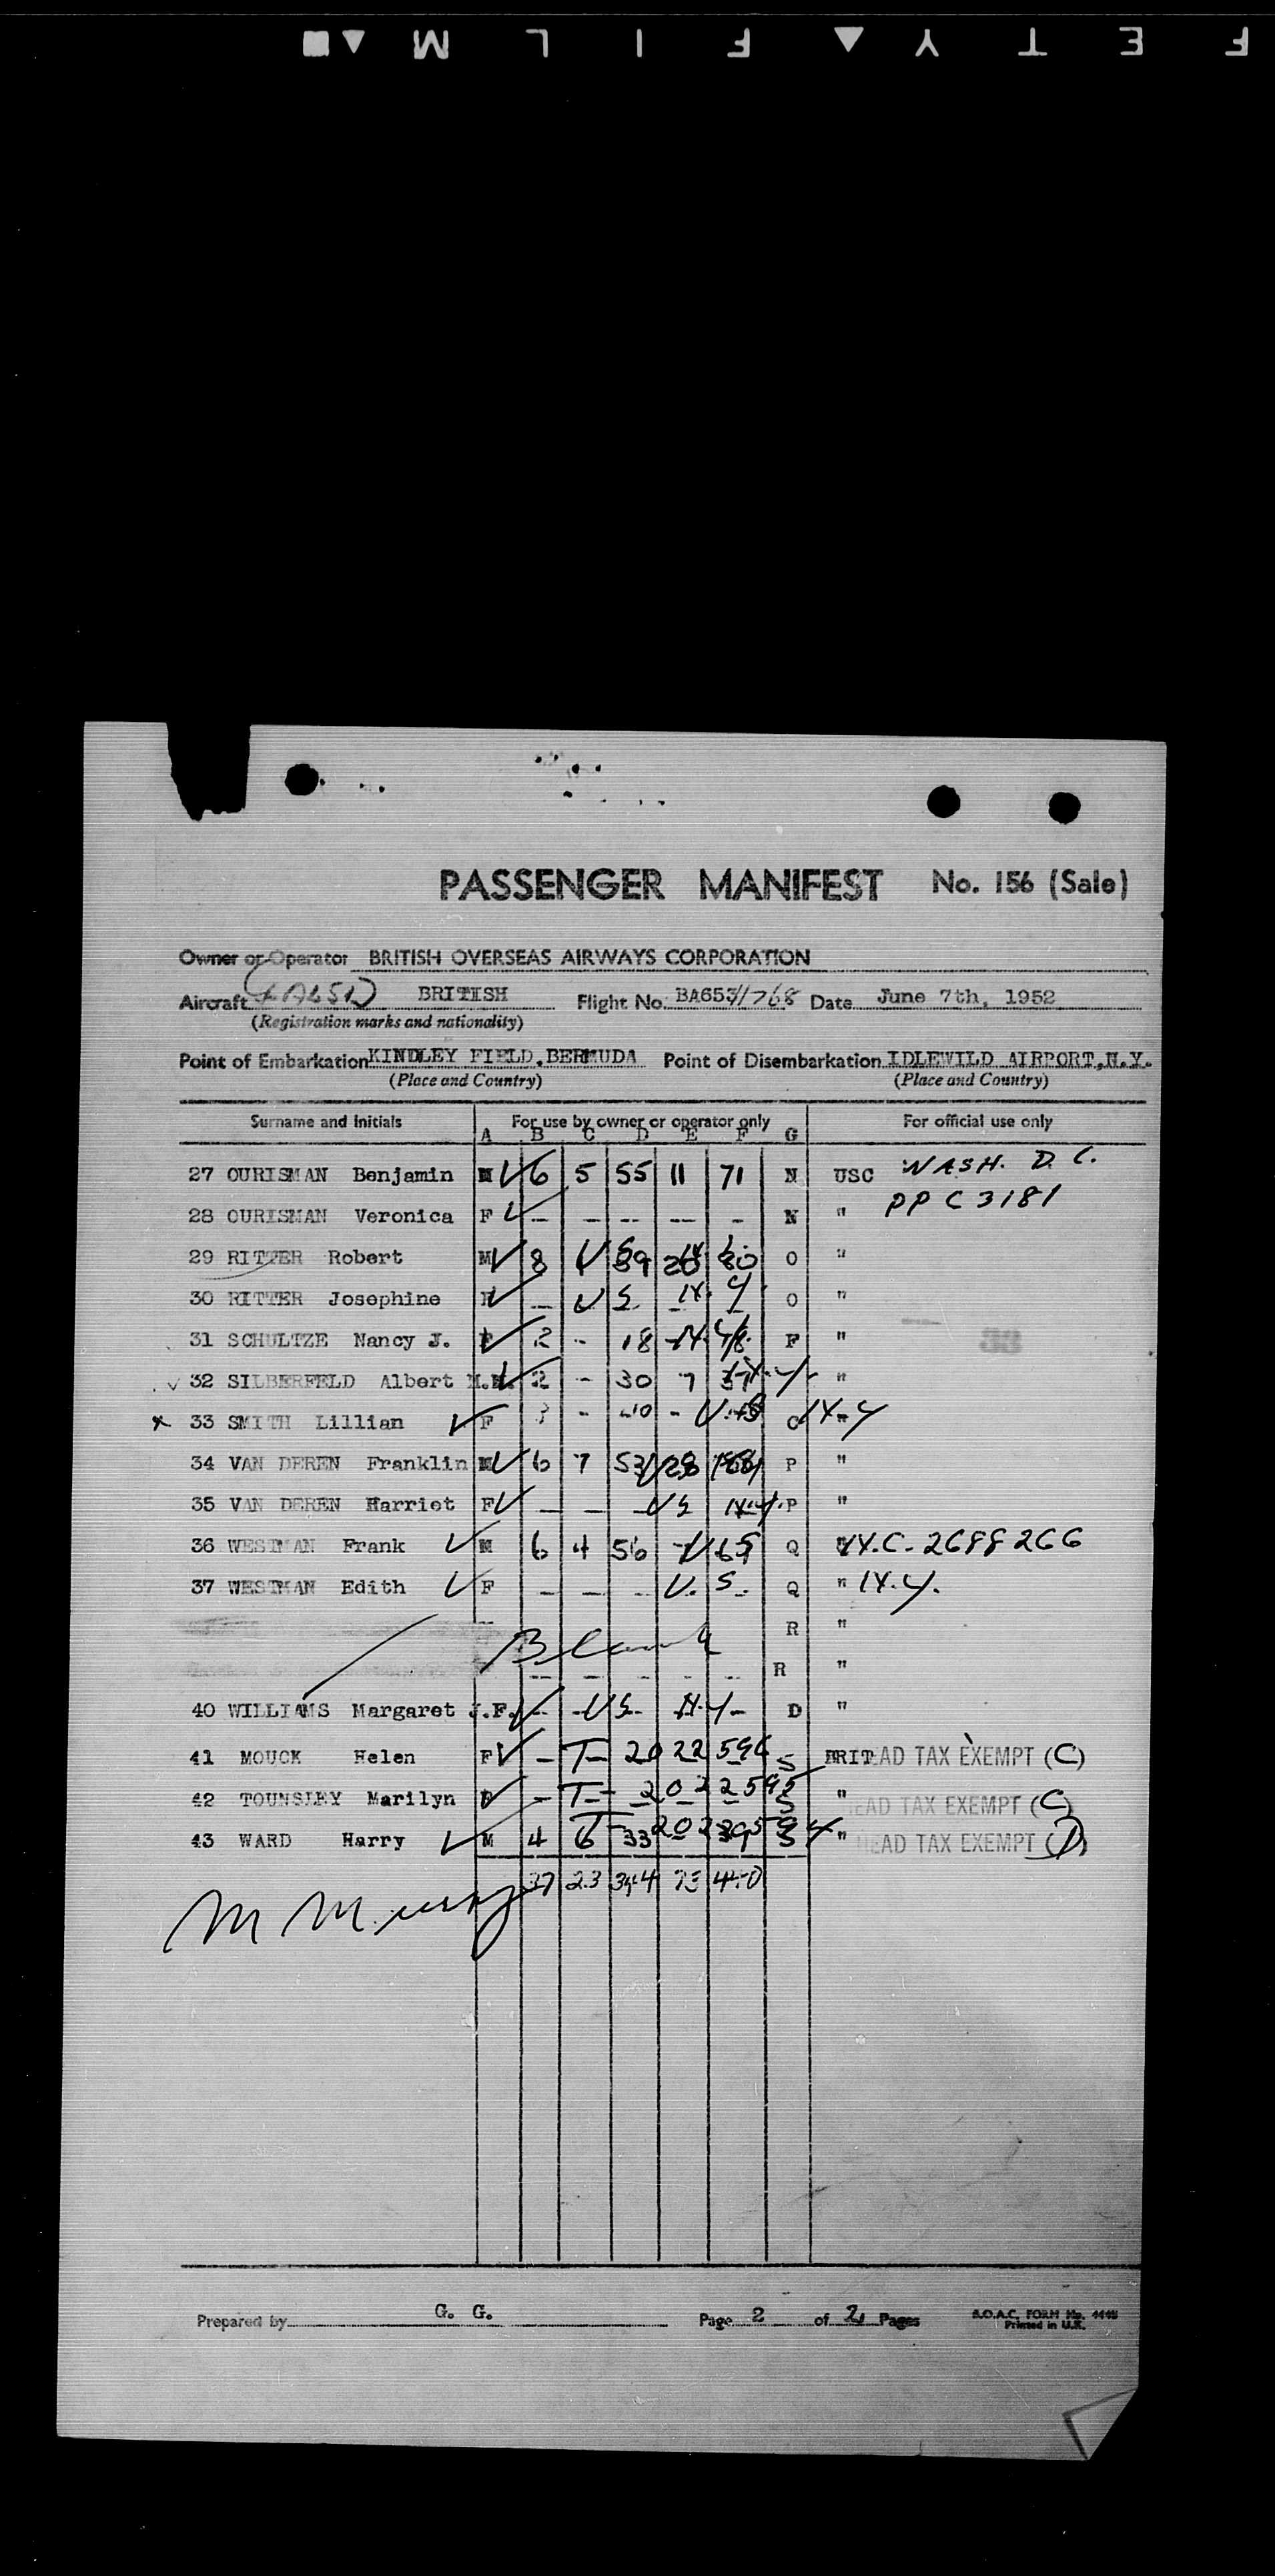 F E T Y ▲ F I L M ▲ ■
PASSENGER MANIFEST No. 156 (Sale)
Owner or Operator BRITISH OVERSEAS AIRWAYS CORPORATION
Aircraft BRITISH Flight No. BA653/1768 Date June 7th, 1952
(Registration marks and nationality)
Point of Embarkation KINDLEY FIELD, BERMUDA Point of Disembarkation IDLEWILD AIRPORT, N.Y.
(Place and Country) (Place and Country)
Surname and Initials For use by owner or operator only For official use only
A B C D E F G
27 OURISMAN Benjamin M 6 5 55 11 71 N USC WASH. D.C.
28 OURISMAN Veronica F — — — — — N " PP C 3181
29 RITTER Robert M 8 O "
30 RITTER Josephine F — U S N.Y. O "
31 SCHULTZE Nancy J. F 2 - 18 F "
32 SILBERFELD Albert M. 2 - 30 7 37 N.Y. "
33 SMITH Lillian F C N.Y.
34 VAN DEREN Franklin M 6 7 53 28 P "
35 VAN DEREN Harriet F — — — U S N.Y. P "
36 WESTMAN Frank M 6 4 56 Q N.C. - 2688266
37 WESTMAN Edith F — — — U. S. Q " N.Y.
R "
Blank
— — — — — R "
40 WILLIAMS Margaret J.F. — U S N.Y. D "
41 MOUCK Helen F — T- 2022596 S BRIT HEAD TAX EXEMPT (C)
42 TOUNSLEY Marilyn F — T- 2022595 S " HEAD TAX EXEMPT (C)
43 WARD Harry M 4 6 33 S " HEAD TAX EXEMPT
37 23 73
Prepared by G. G. Page 2 of 2 Pages B.O.A.C. FORM No. 4448
Printed in U.K.